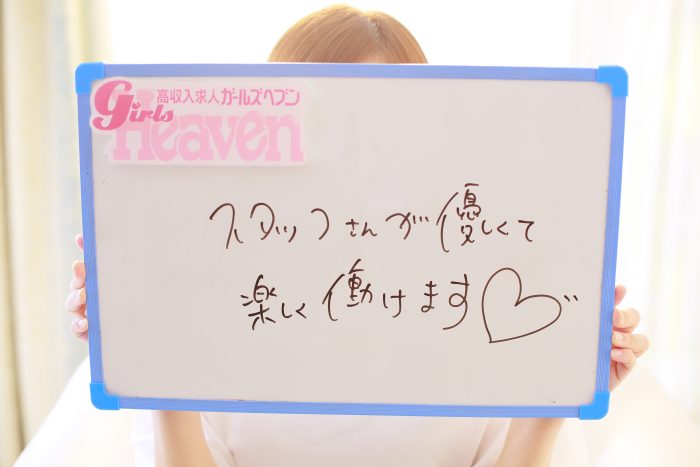 高収入求人ガールズヘブン
Girls
Heaven
スタッフさんが優しくて
楽しく働けます♡